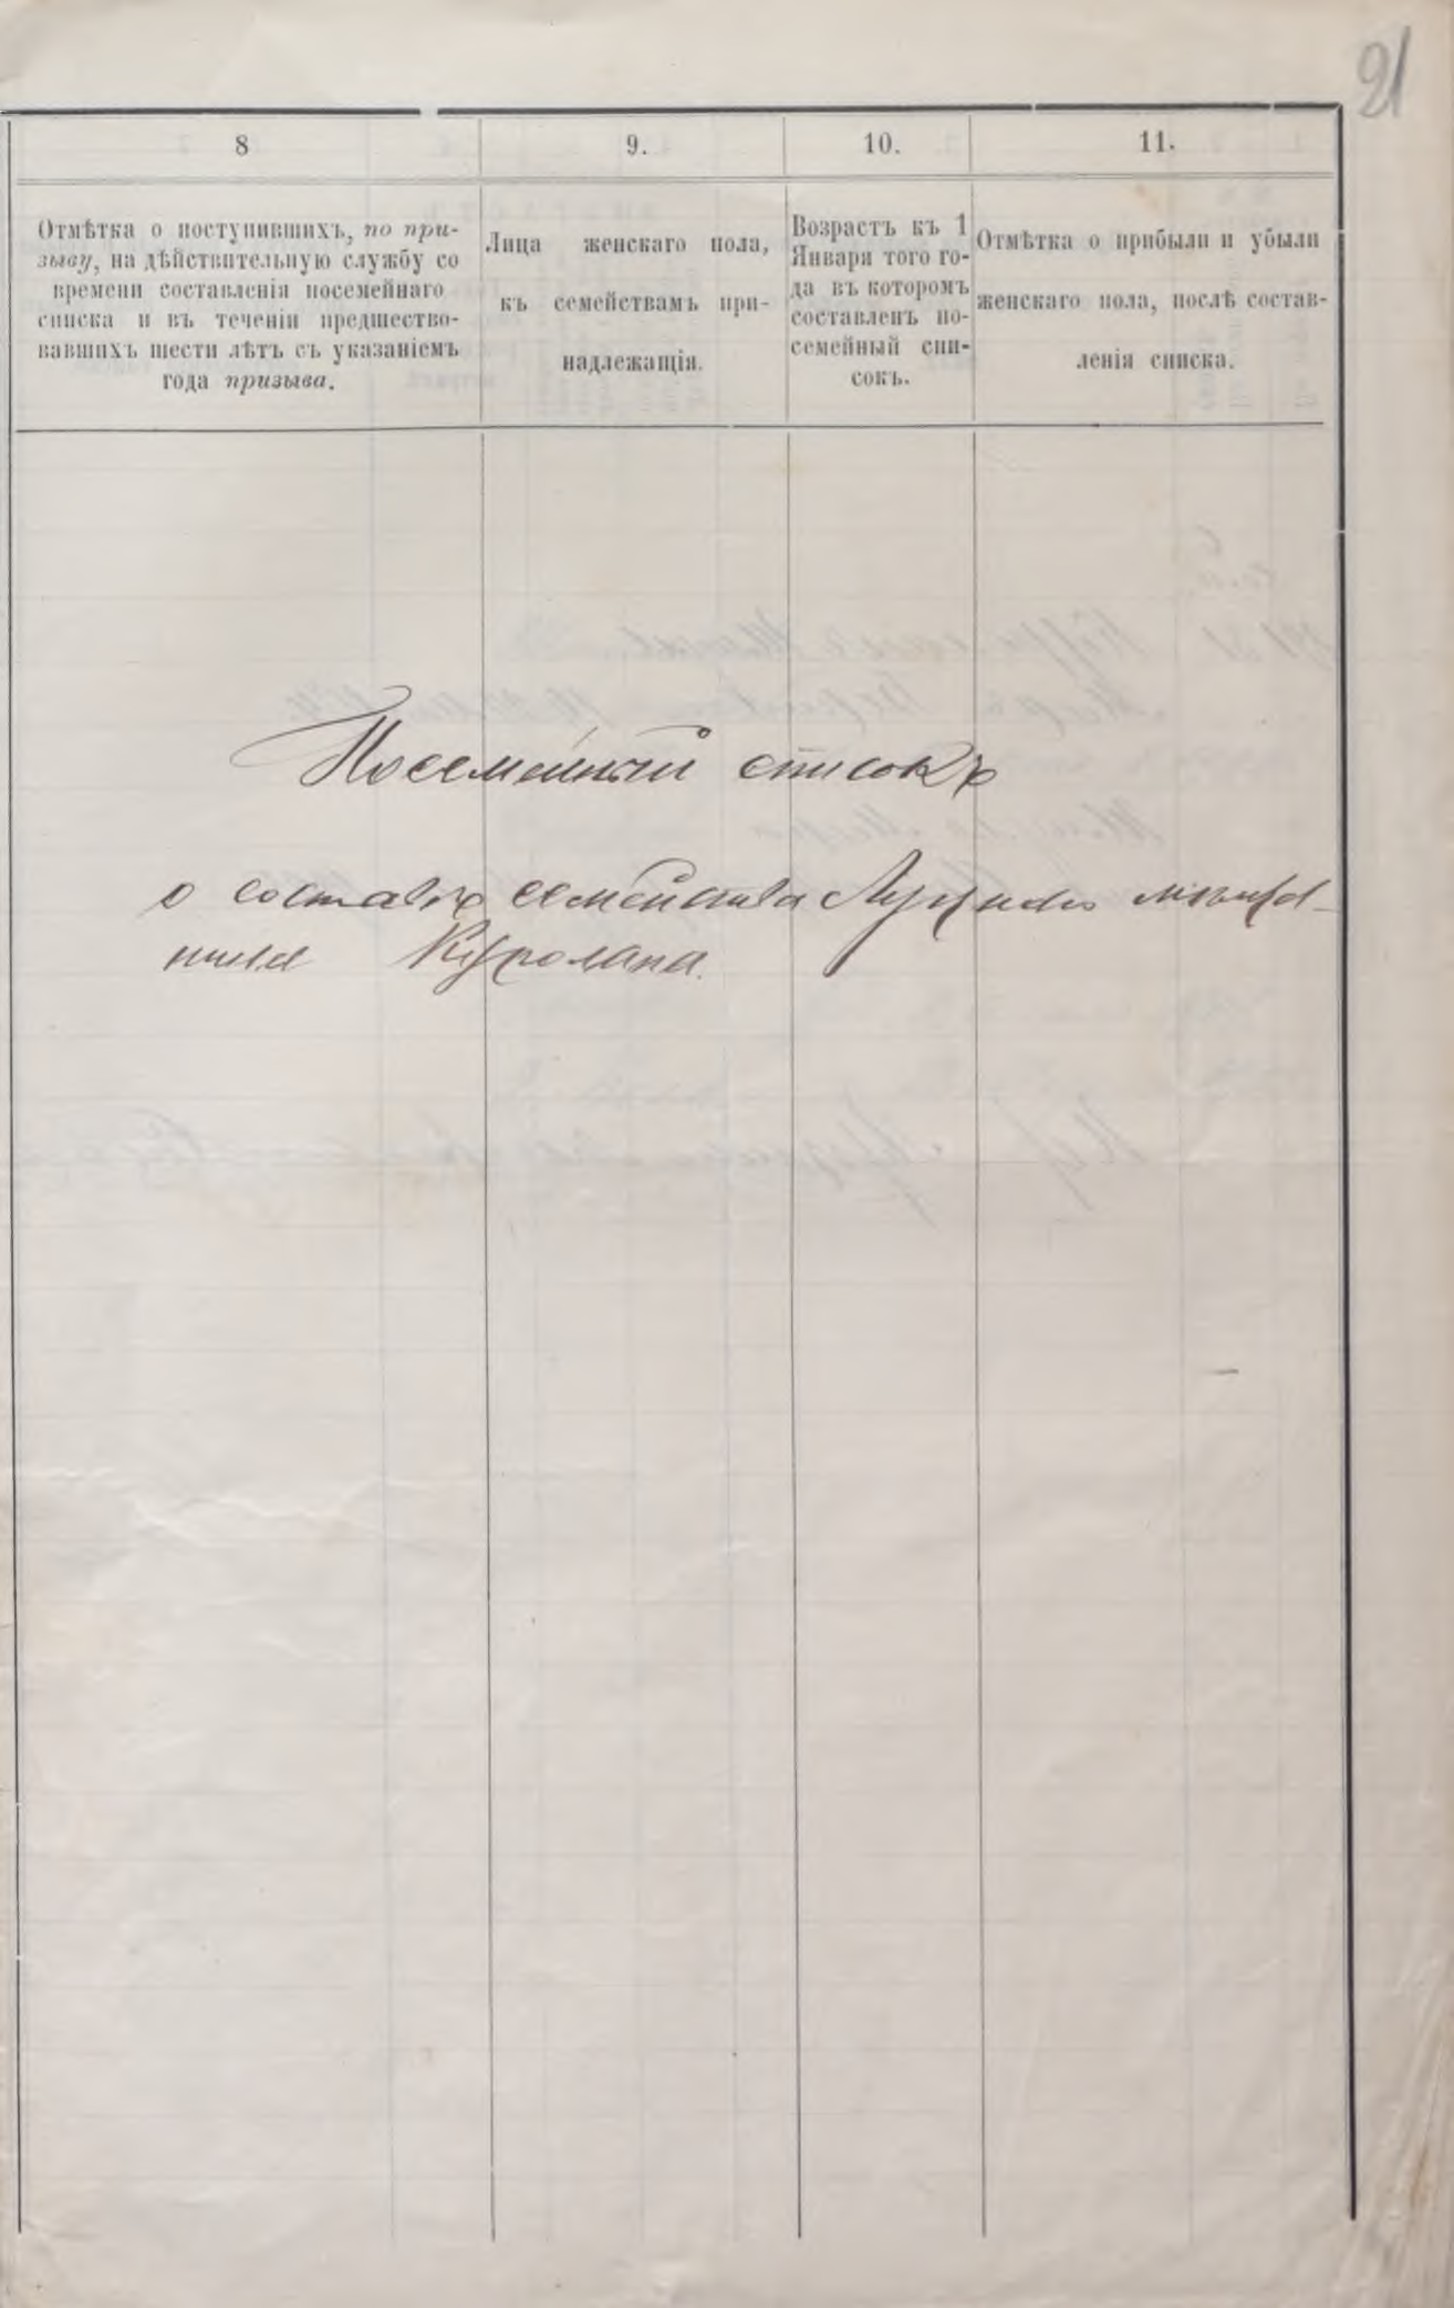 21
8
9.
10.
11.
Отмѣтка о поступившихъ, по при-
зыву, на дѣйствительную службу со
времени составленія посемейнаго
списка и въ теченіи предшество-
вавшихъ шести лѣтъ съ указаніемъ
года призыва.
Лица женскаго пола,
къ семействамъ при-
надлежащія.
Возрастъ къ 1
Января того го-
да въ которомъ
составленъ по-
семейный спи-
сокъ.
Отмѣтка о прибыли и убыли
женскаго пола, послѣ состав-
ленія списка.
Посемейный списокъ
о составѣ семейства мѣща-
нина